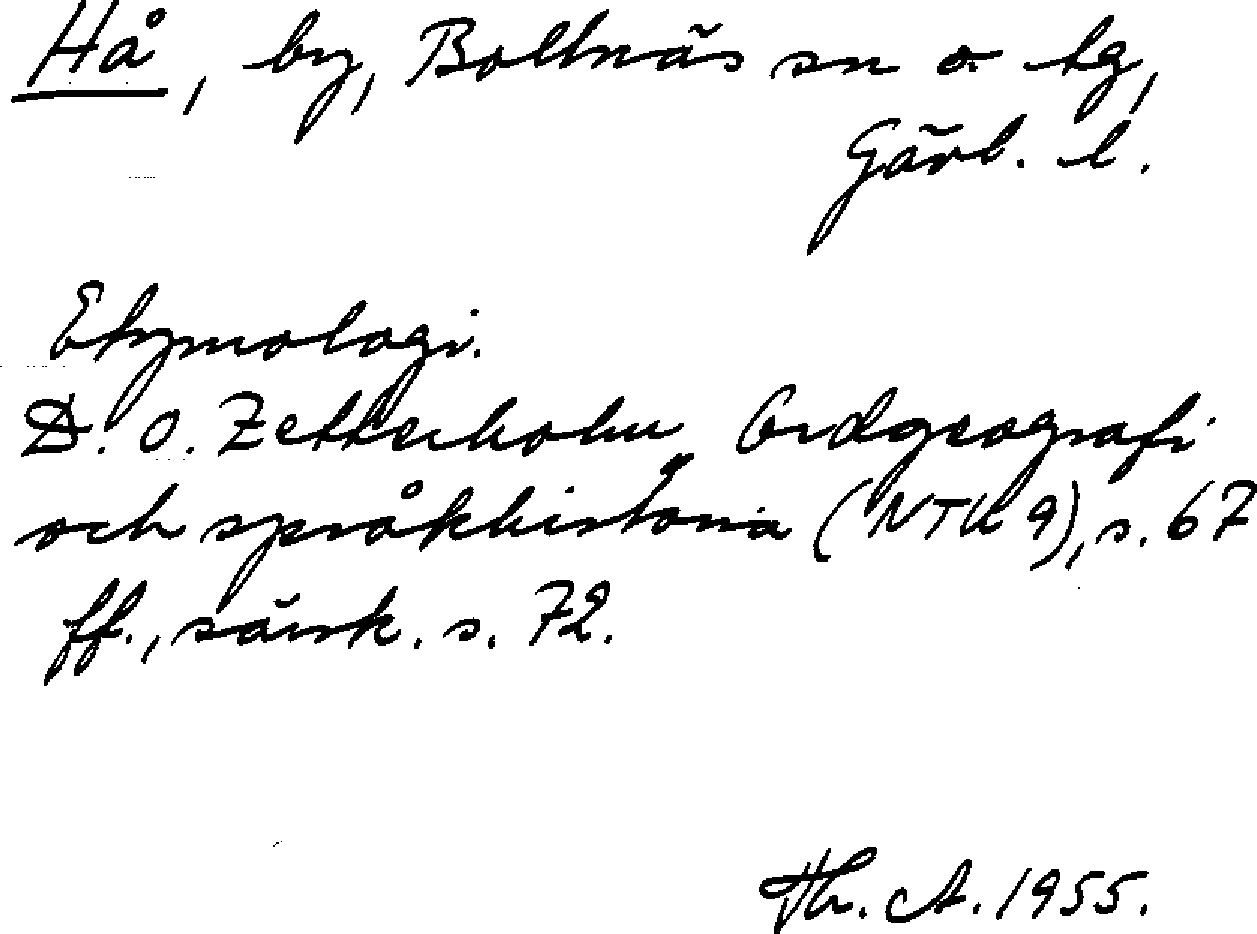 Hå, by, Bollnäs sn o. tg,
Gävl. l.
Etymologi.
D. O. Zetterholm, Ordgeografi
och språkhistoria (NTU 9), s. 67
ff., särsk. s. 72.
Th. A. 1955.